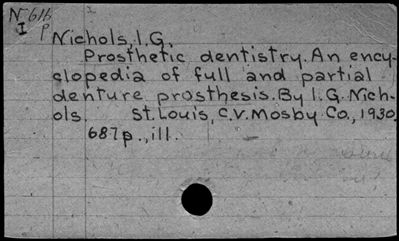 N 616
I p
Nichols, I.G.
Prosthetic dentistry. An ency-
clopedia of full and partial
denture prosthesis. By I.G. Nich-
ols. St. Louis, C.V. Mosby Co., 1930.
687p., ill.